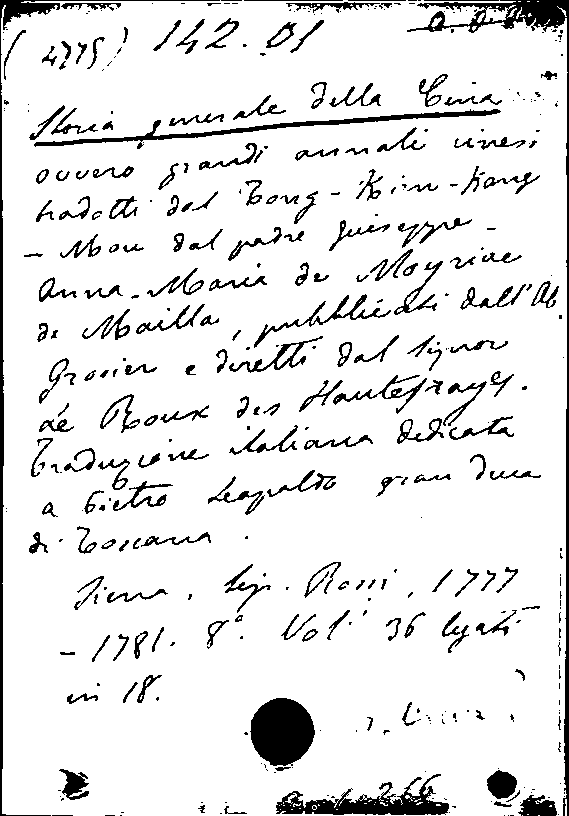 (4775) 142.01
Storia generale della Cina
ovvero grandi annali cinesi
tradotti dal Tong-Kien-Kang
-Mou dal padre Giuseppe-
Anna-Maria de Moyriac
de Mailla, pubblicati dall'Ab.
Grosier e diretti dal Signor
de Roux des Hautesrayes.
Traduzione italiana dedicata
a Pietro Leopoldo gran duca
di Toscana.
Siena, tip. Rossi, 1777
-1781. 8°. Vol. 36 legati
in 18.
266